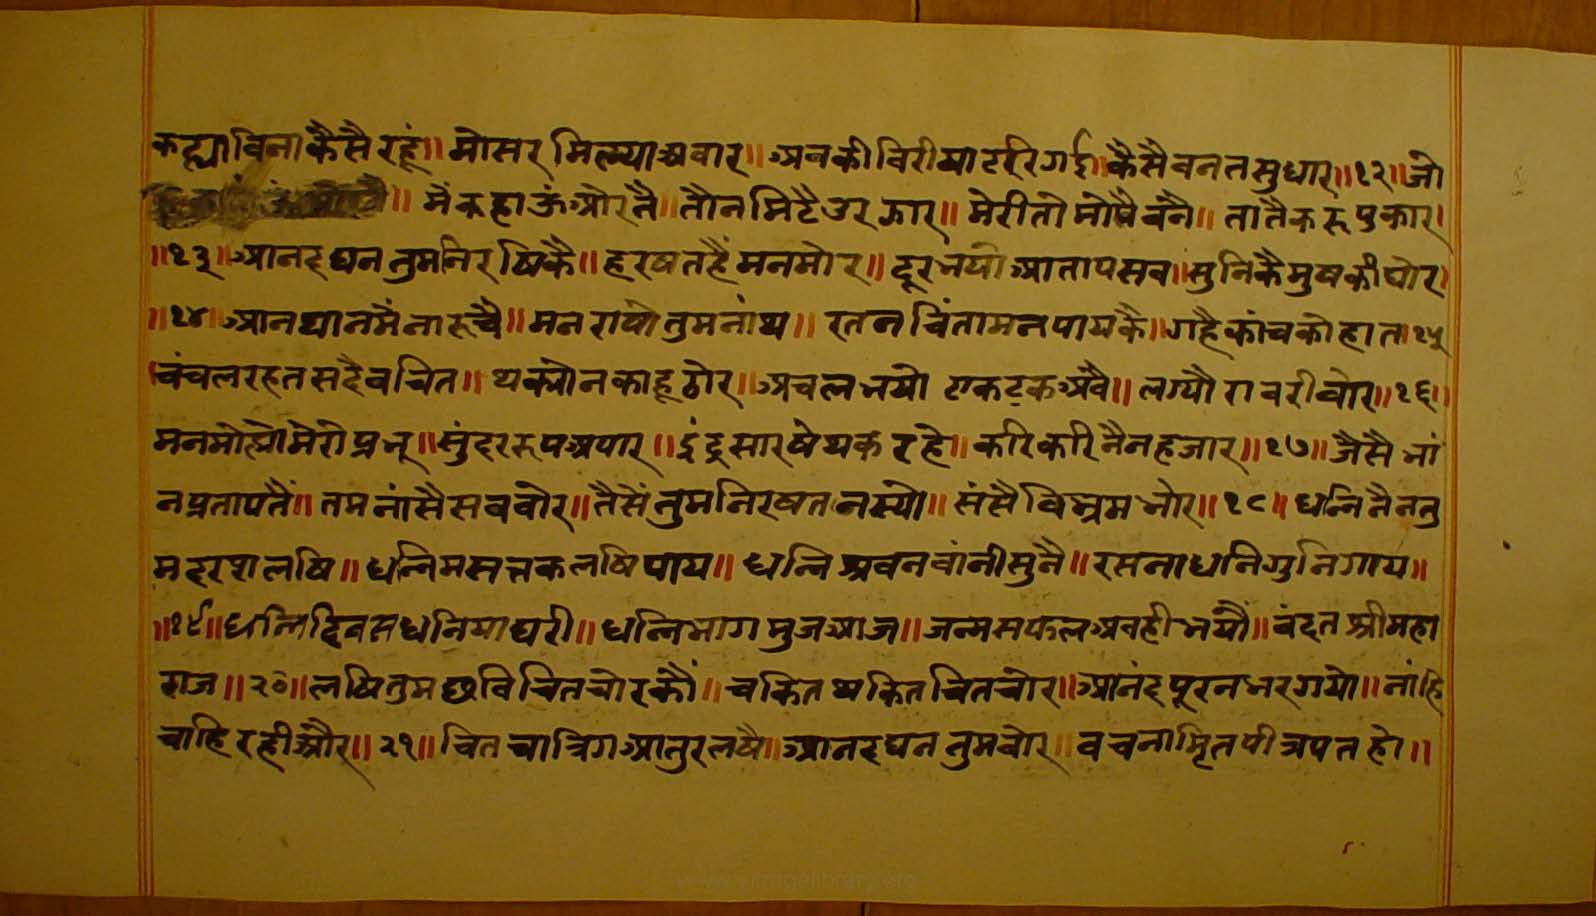 कह्याविनाकैसैरहूं॥ मोसर मिल्याअवार॥ अबकीविरीयाटरिगई॥ कैसैवनतसुधार॥१२॥ जो
॥ मैंकहाऊंओरतै॥ तौनमिटैउरझार॥ मेरीतोमोपैबनै॥ तातैकरूंपुकार।
॥१३॥ आनदघनतुमनिरषिकै॥ हरषतहैंमनमोर॥ दूरभयोआतापसब॥ सुनिकैमुषकीघोर।
॥१४॥ आनध्यानमैंनारूचै॥ मनराषोतुमनांथ॥ रतनचिंतामनपायकै॥ गहैकांचकोहात॥१५
चंचलरहतसदैवचित॥ थक्योनकाहूठोर॥ अचलभयो एकटकअबै॥ लग्यौरावरीवोर॥१६॥
मनमोह्योमेरोप्रभू॥ सुंदररूपअपार॥ इंद्रसारषेथकरहे॥ करिकरिनैनहजार॥१७॥ जैसैभां
नप्रतापतैं॥ तमनांसैसबवोर॥ तैसेंतुमनिरषतनस्यो॥ संसैविभ्रमभोर॥१८॥ धन्निनैनतु
मदरशलषि॥ धन्निमसत्तकलषिपाय॥ धन्निश्रवनवांनीसुनै॥ रसनाधनिगुनिगाय॥
॥१९॥ धन्निदिवसधनियाघरी॥ धन्निभागमुजआज॥ जन्मसफलअबहीभयौं॥ बंदतश्रीमहा
राज॥२०॥ लषितुमछविचितचोरकौं॥ चकितथकितचितचोर॥ आनंदपूरनभरगयो॥ नांहि
चाहिरहीऔर॥२१॥ चितचात्रिगआतुरलषै॥ आनदघनतुमवोर॥ वचनाम्रितपीत्रपतहो॥